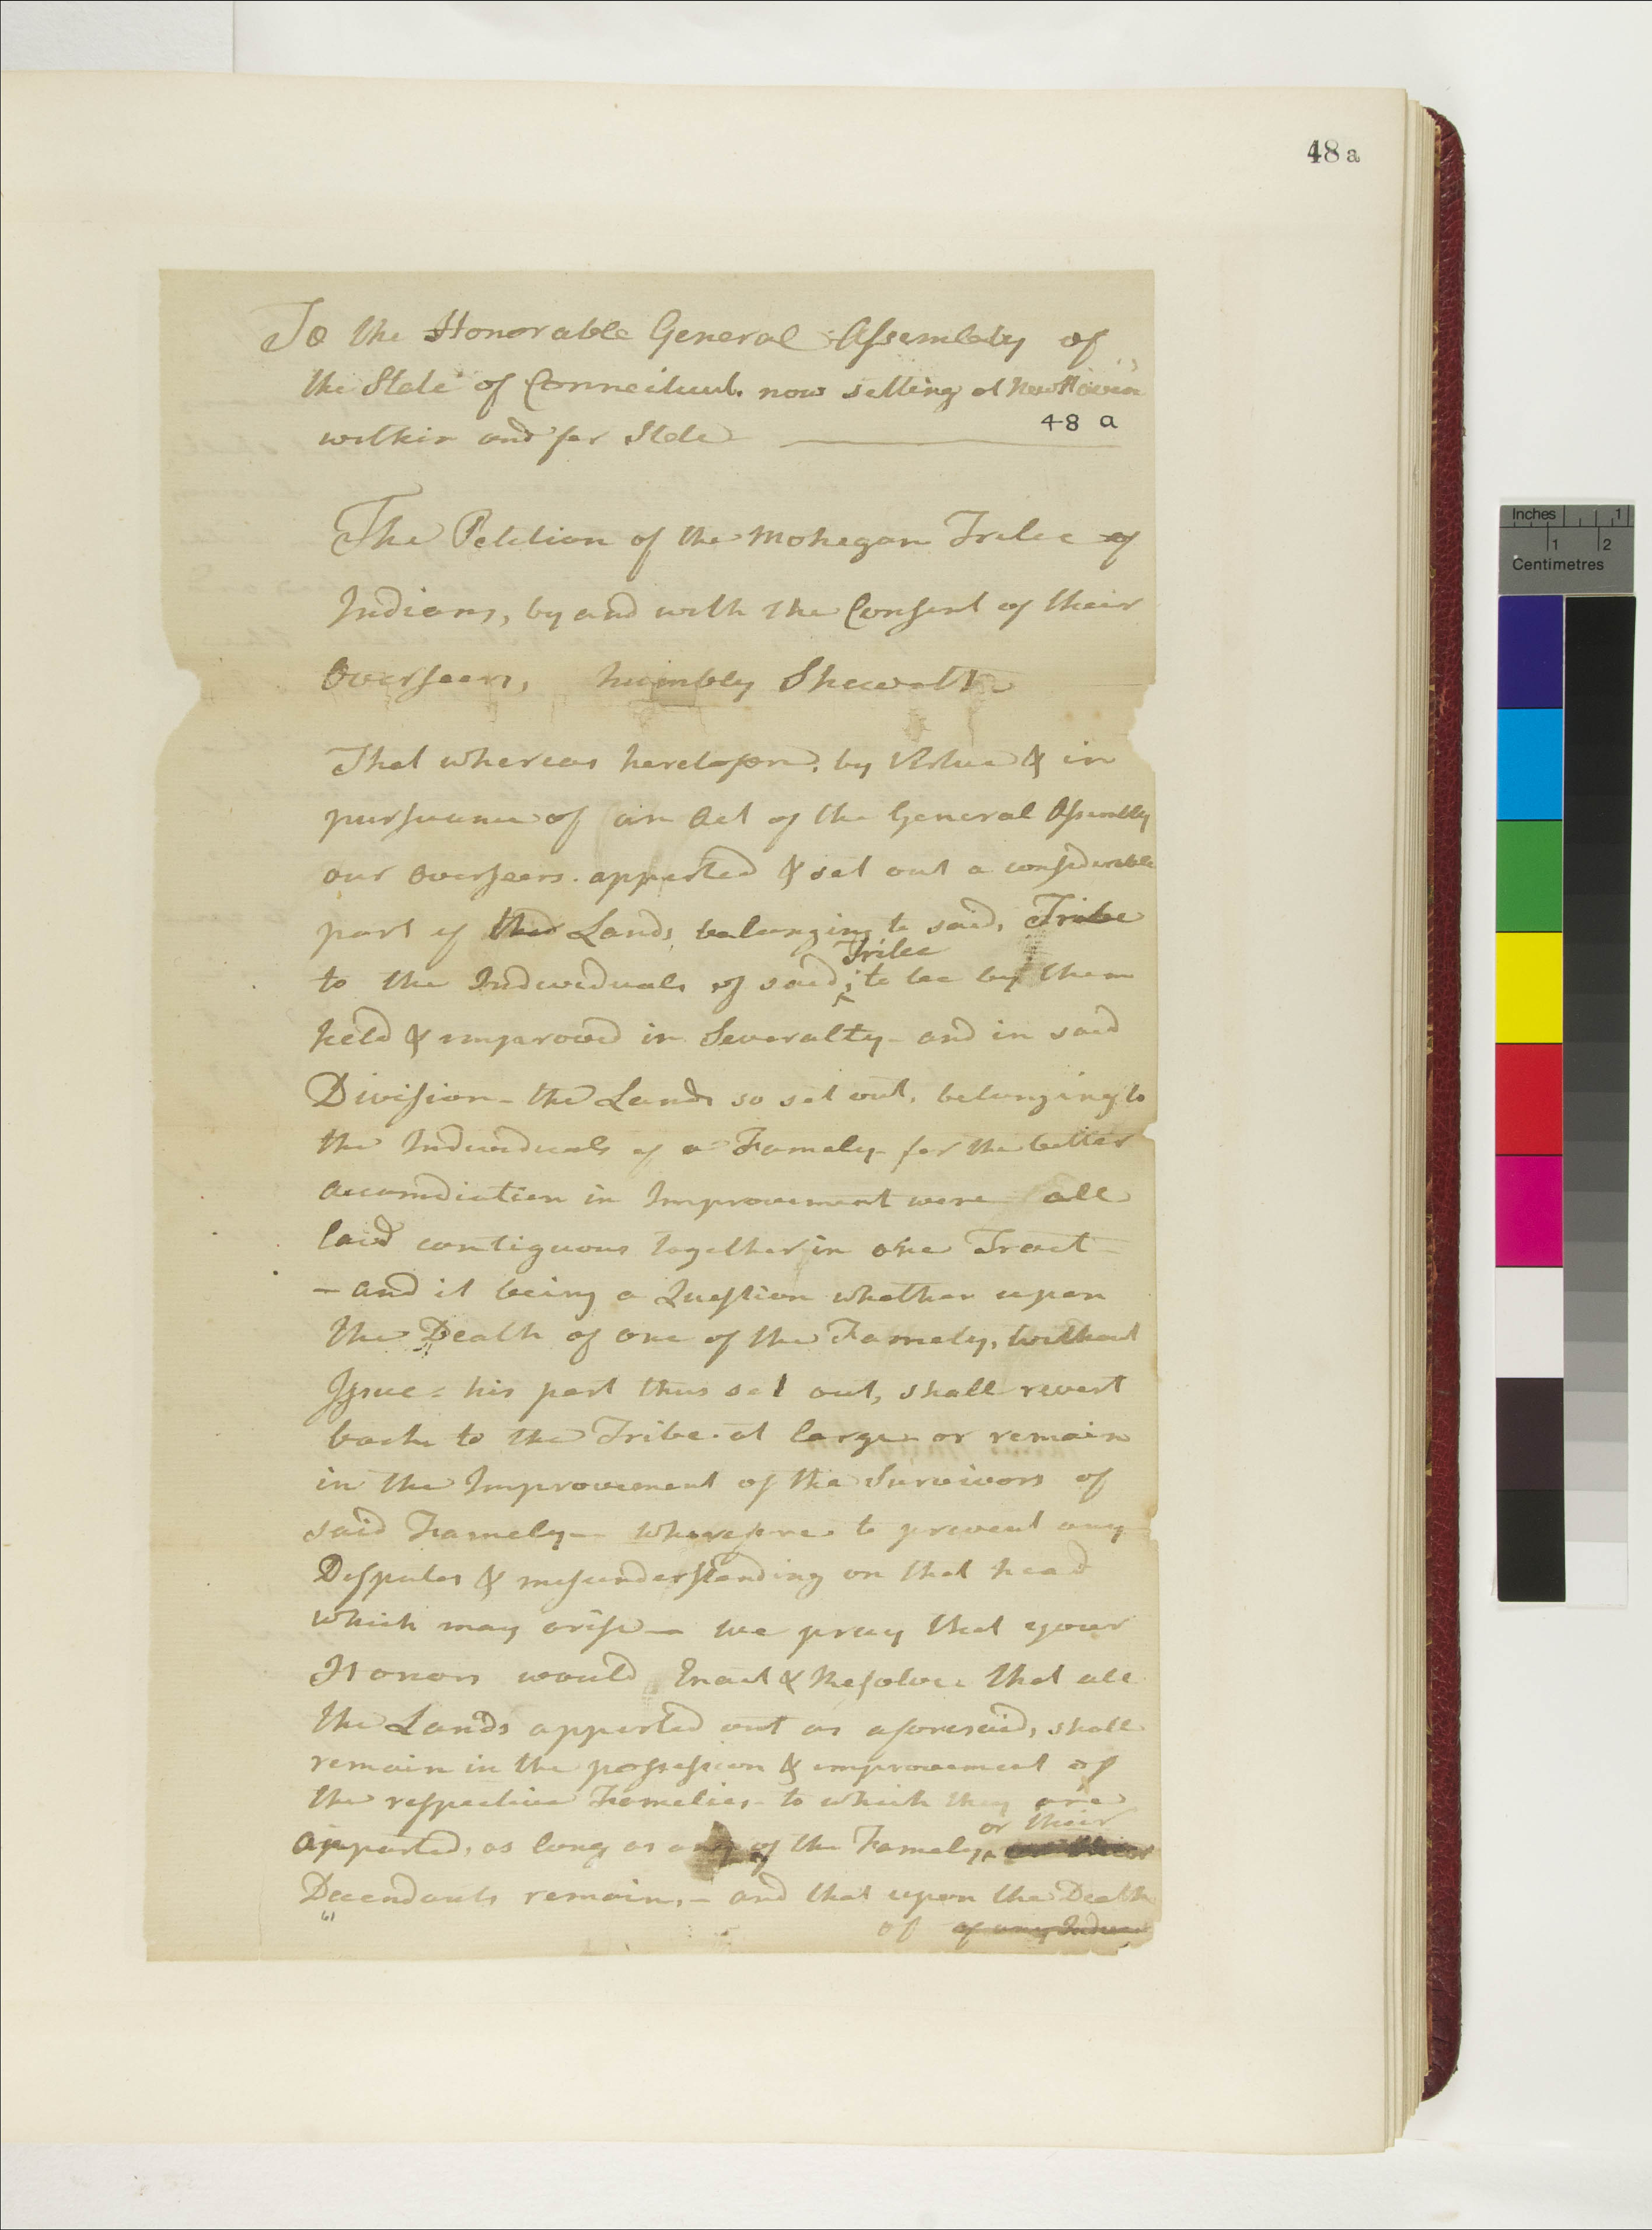 48 a
To the Honorable General Assembly of
the State of Connecticut. now setting at New Haven
within and for State
48 a
The Petition of the Mohegan Tribe of
Indians, by and with the Consent of their
Overseers, humbly Sheweth
That whereas heretofore, by Virtue & in
pursuance of an Act of the General Assembly
our Overseers. apported & set out a considerable
part of the Lands belonging to said, Tribe
Tribe
to the Individuals of said, to be by them
held & improved in Severalty - and in said
Division - the Lands so set out, belonging to
the Individuals of a Famely - for the better
accomdiation in Improvement were all
laid contiguous together in one Tract
- and it being a Question whether upon
the Death of one of the Famely, without
Issue = his part thus set out, shall revert
back to the Tribe. at large - or remain
in the Improvement of the Survivors of
said Famely - wherefore to prevent any
Disputes & misunderstanding on that head
which may arise - we pray that your
Honors would Enact & Resolve that all
the Lands apported out as aforesaid, shall
remain in the possession & improvement of
the respective Famelies - to which they are
or their
apported, as long as any of the Famely,
Decendants remain, - and that upon the Death
61
of of any Indivi